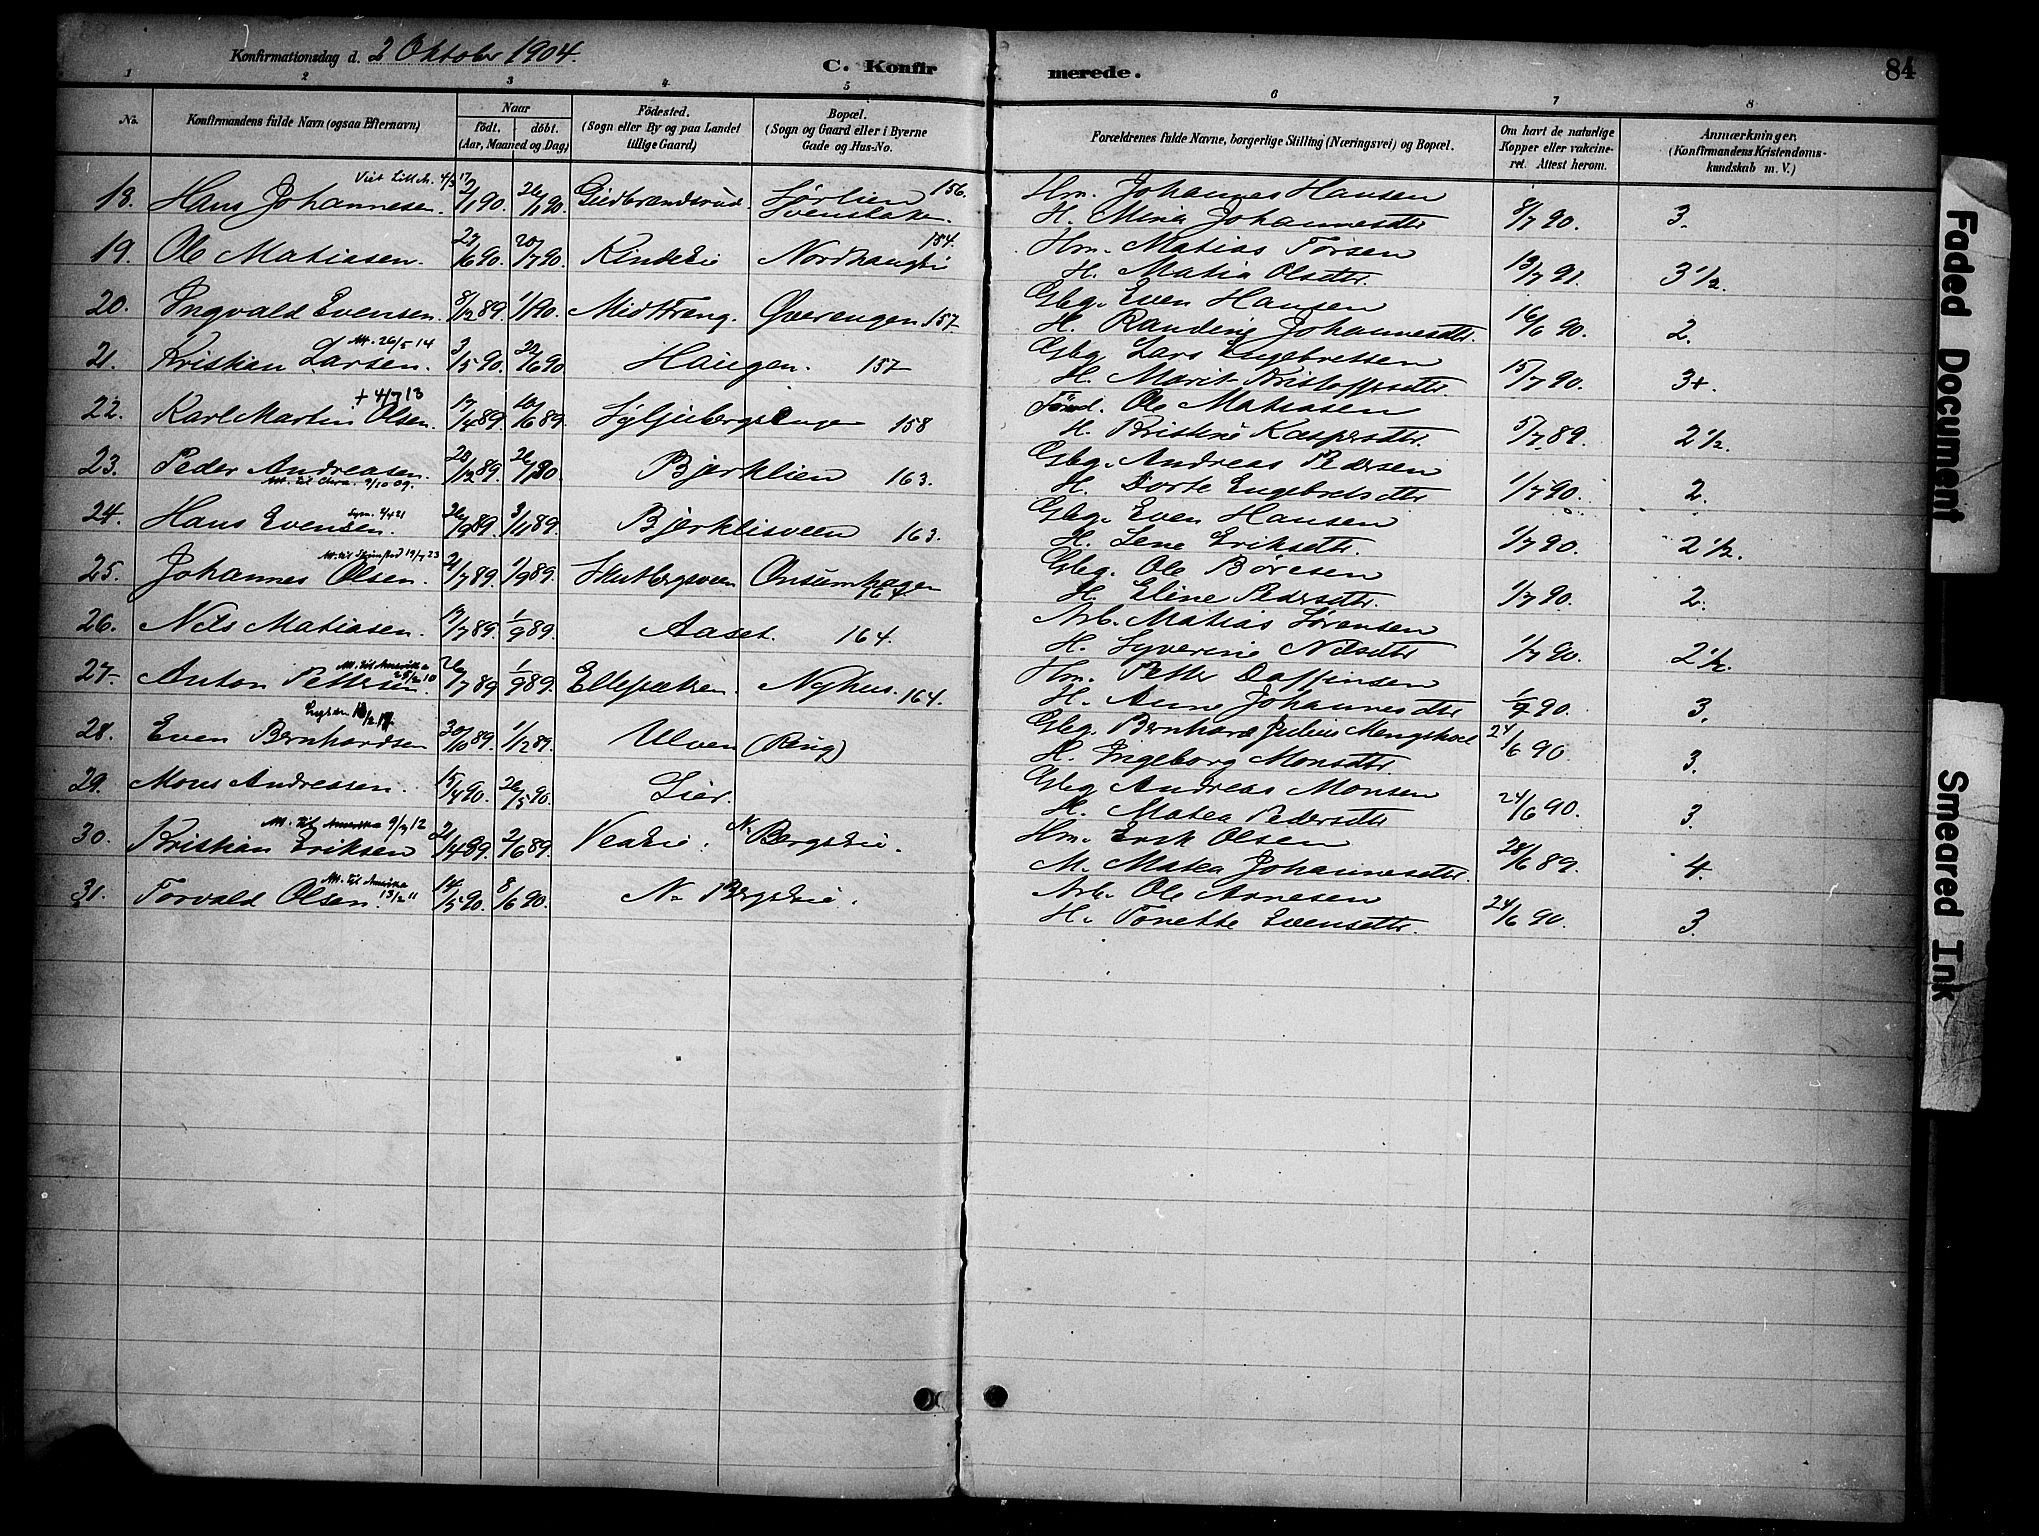 Konfirmationsdag d. 2 Oktober 1904.
C. Konfirmerede.
84
1 2 3 4 5 6 7 8
No.
Konfirmandens fulde Navn (ogsaa Efternavn)
Naar
födt. döbt.
(Aar, Maaned og Dag)
Födested.
(Sogn eller By og paa Landet
tillige Gaard)
Bopæl.
(Sogn og Gaard eller i Byerne
Gade og Hus-No.
Forældrenes fulde Navne, borgerlige Stilling (Næringsvei) og Bopæl.
Om havt de naturlige
Kopper eller vakcine-
ret. Attest herom.
Anmærkninger.
(Konfirmandens Kristendoms-
kundskab m. V.)
18. Hans Johannesen. 2/1 90. 26/1 90. Gudbrandsrud. Sørlien 156. Hm. Johannes Hansen
H. Mina Johannesdtr 8/7 90. 3.
19. Ole Matiasen. 23/6 90. 20/7 90. Nordhaugli 154. Hm. Matias Torsen
H. Matia Olsdtr. 13/7 91. 3 1/2.
20. Ingvald Evensen. 8/12 89. 1/1 90. Midtræng. 157 Gbg. Even Hansen
H. Randine Johannesdtr. 14/6 90. 2.
21. Kristian Larsen. Att. 26/5 14 3/5 90. 22/6 90 Haugen. 157 Gbg. Lars Engebretsen
H. Marit Kristoffersdtr. 15/7 90. 3+.
22. Karl Martin Olsen. + 4/7 13 17/4 89. 10/6 89. 158 Ole Matiasen
H. Kristine Kaspersdtr. 5/7 89. 2 1/2.
23. Peder Andreasen. 28/12 89. 26/1 90. Bjerklien 163. Gbg. Andreas Pedersen
Att. til Chra. 9/10 09. H. Dorte Engebretsdtr 1/7 90. 2.
24. Hans Evensen. 26/9 89. 3/11 89. Bjerklisveen 163. Gbg. Even Hansen
H. Lene Eriksdtr. 1/7 90. 2 1/2.
25. Johannes Olsen. 21/7 89. 1/9 89. Skutbergsveen Onsumhagen 164 Gbg. Ole Børesen
H. Eline Pedersdtr. 1/7 90. 2.
26. Nils Matiasen. 17/7 89. 1/9 89. Aaset. 164. Arb. Matias Sørensen
H. Syverine Nilsdtr 1/7 90. 2 1/2.
27. Anton Pettersen. Att. til Amerika 28/2 10 26/7 89 1/9 89. Nyhus. 164. Hm. Petter Daffinsen
H. Anne Johannesdtr 1/7 90. 3.
28. Even Bernhardsen 30/10 89. 1/12 89. Ulven (Ring) Gbg. Bernhard Julius Mengshoel
H. Ingeborg Monsdtr. 24/6 90. 3.
29. Mons Andreasen. 15/4 90. 26/5 90. Lier. Gbg. Andreas Monsen
H. Matea Pedersdtr 24/6 90. 3.
30. Kristian Eriksen Att. til Amerika 9/3 12 21/4 89. 2/6 89. N. Bergslie. Hm. Erik Olsen
M. Matea Johannesdtr. 28/6 89. 4.
31. Torvald Olsen. Att. til Amerika 13/2 11 14/5 90. 8/6 90. N. Bergslie. Arb. Ole Arnesen
H. Tonette Evensdtr. 24/6 90. 3.
Faded Document
Smeared Ink